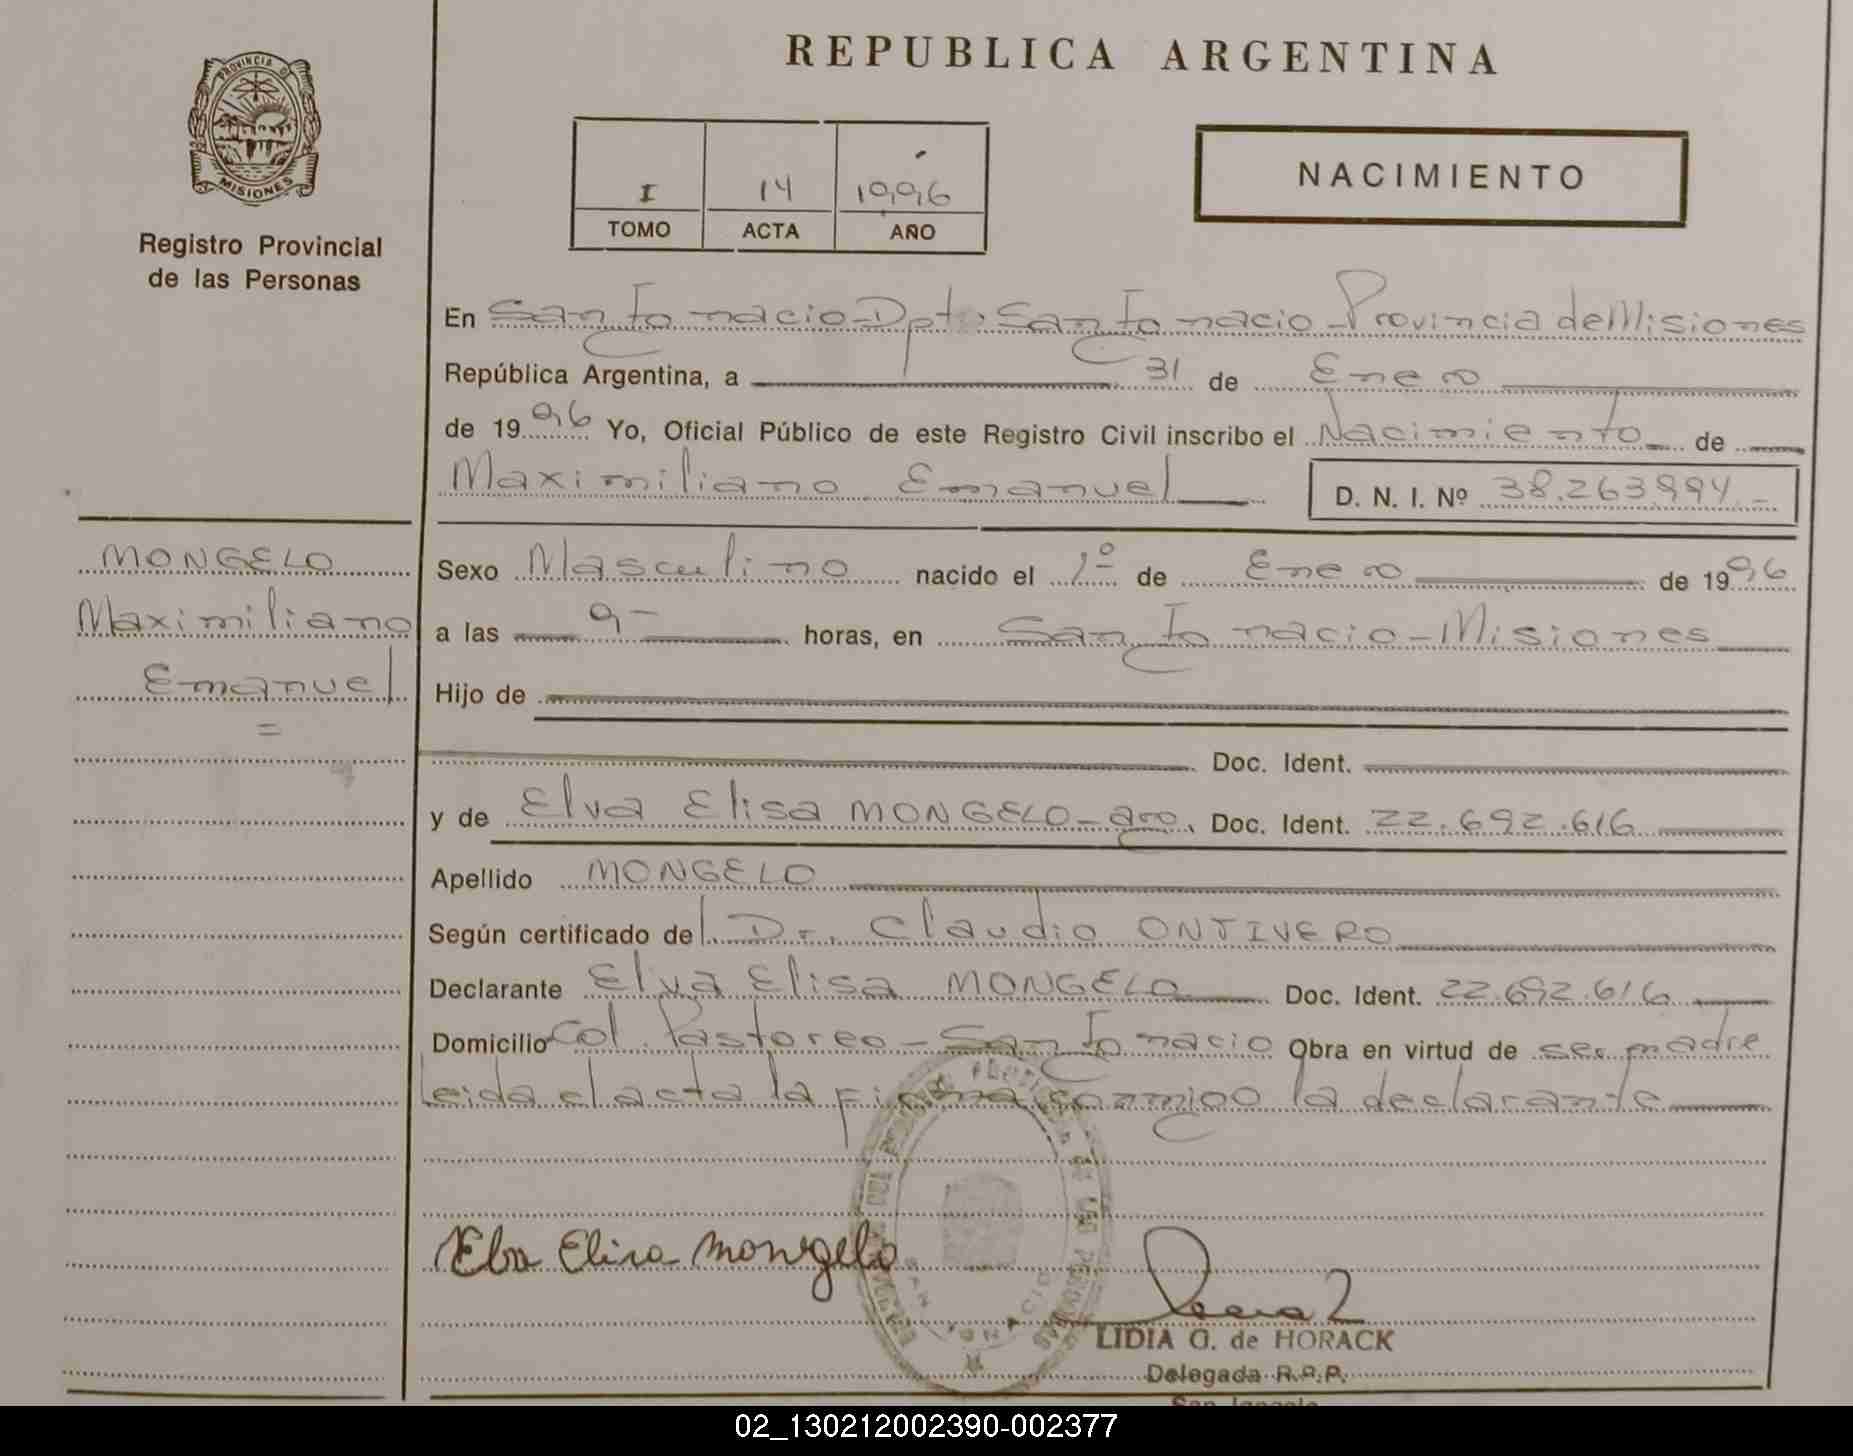 REPUBLICA ARGENTINA
PROVINCIA D
MISIONES
Registro Provincial
de las Personas
I 14 1996
TOMO ACTA AÑO
NACIMIENTO
En San Ignacio - Dpto. San Ignacio - Provincia de Misiones
República Argentina, a 31 de Enero
de 1996 Yo, Oficial Público de este Registro Civil inscribo el Nacimiento de
Maximiliano Emanuel D. N. I. Nº 38.263994.-
MONGELO
Maximiliano
Emanuel
=
Sexo Masculino nacido el 1º de Enero de 1996
a las 9- horas, en San Ignacio - Misiones
Hijo de
Doc. Ident.
y de Elva Elisa MONGELO - arg. Doc. Ident. 22.692.616
Apellido MONGELO
Según certificado del Dr. Claudio ONTIVERO
Declarante Elva Elisa MONGELO Doc. Ident. 22.692.616
Domicilio Col. Pastoreo - San Ignacio Obra en virtud de ser madre
leida el acta la firma conmigo la declarante
Elva Elisa Mongelo
LIDIA G. de HORACK
Delegada R.P.P.
San Ignacio
02_130212002390-002377